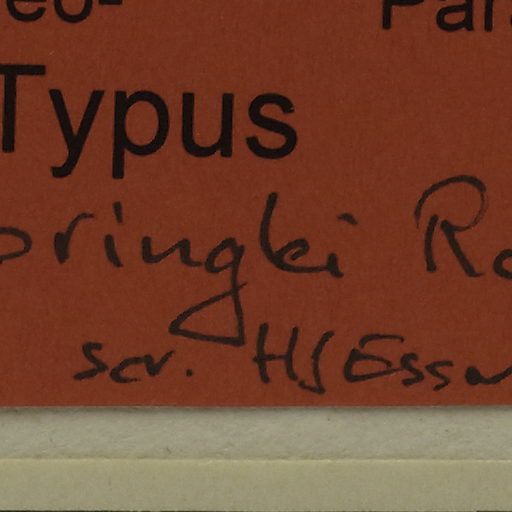 eo- Para
Typus
oringki Ro
scr. HJEssw